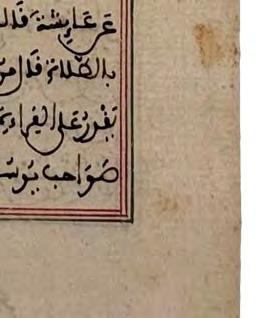 عن عايشة قال
بالصلاة قال مر
يقدر على القراءة
صواحب يوس